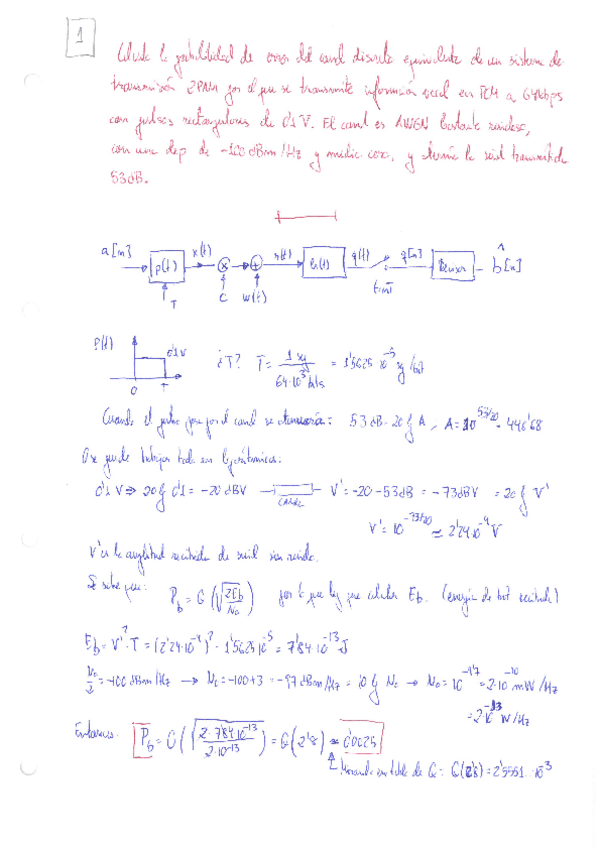 1
Calcule la probabilidad de error del canal discreto equivalente de un sistema de
transmisión 2PAM por el que se transmite información vocal en PCM a 64kbps
con pulsos rectangulares de 0'1 V. El canal es AWGN bastante ruidoso,
con una dep de -100 dBm/Hz y media cero, y atenúa la señal transmitida
53 dB.
a[n] p(t) x(t) x + r(t) h(t) q(t) q[n] b̂[n]
T c w(t) t=nT
P(t) 0'1 V 0 T
¿T? T = 1 sg / 64·10³ bits = 1'5625·10⁻⁵ sg/bit
Cuando el pulso pase por el canal se atenuaría: 53 dB = 20 lg A, A = 10^(53/20) = 446'68
O se puede trabajar todo en logarítmicas:
0'1 V ⇒ 20 lg 0'1 = -20 dBV CANAL V' = -20-53dB = -73dBV = 20 lg V'
V' = 10^(-73/20) ≃ 2'24·10⁻⁴ V
V' es la amplitud recibida de señal sin ruido.
Se sabe que: P_b = Q(√(2E_b/N₀)) por lo que hay que calcular E_b. (energía de bit recibida)
E_b = V'²·T = (2'24·10⁻⁴)²·1'5625·10⁻⁵ = 7'84·10⁻¹³ J
N₀/2 = -100 dBm/Hz → N₀ = -100+3 = -97 dBm/Hz = 10 lg N₀ → N₀ = 10^(-9'7) = 2·10⁻¹⁰ mW/Hz
= 2·10⁻¹³ W/Hz
Entonces: P_b = Q(√(2·7'84·10⁻¹³ / 2·10⁻¹³)) = Q(2'8) ≃ 0'0025
Mirando en tabla de Q: Q(2'8) = 2'5551...10⁻³